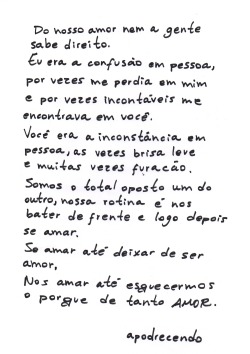 Do nosso amor nem a gente
sabe direito.
Eu era a confusão em pessoa,
por vezes me perdia em mim
e por vezes incontáveis me
encontrava em você.
Você era a inconstância em
pessoa, as vezes brisa leve
e muitas vezes furacão.
Somos o total oposto um do
outro, nossa rotina é nos
bater de frente e logo depois
se amar.
Se amar até deixar de ser
amor,
Nos amar até esquecermos
o porque de tanto AMOR.
apodrecendo